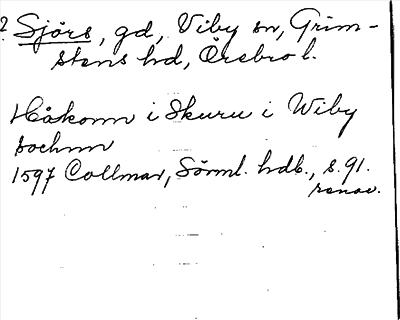 ? Sjörs, gd, Viby sn, Grim-
stens hd, Örebro l.
Håkonn i Skuru i Wiby
sochnn
1597 Collmar, Sörml. hdb., s. 91.
renov.